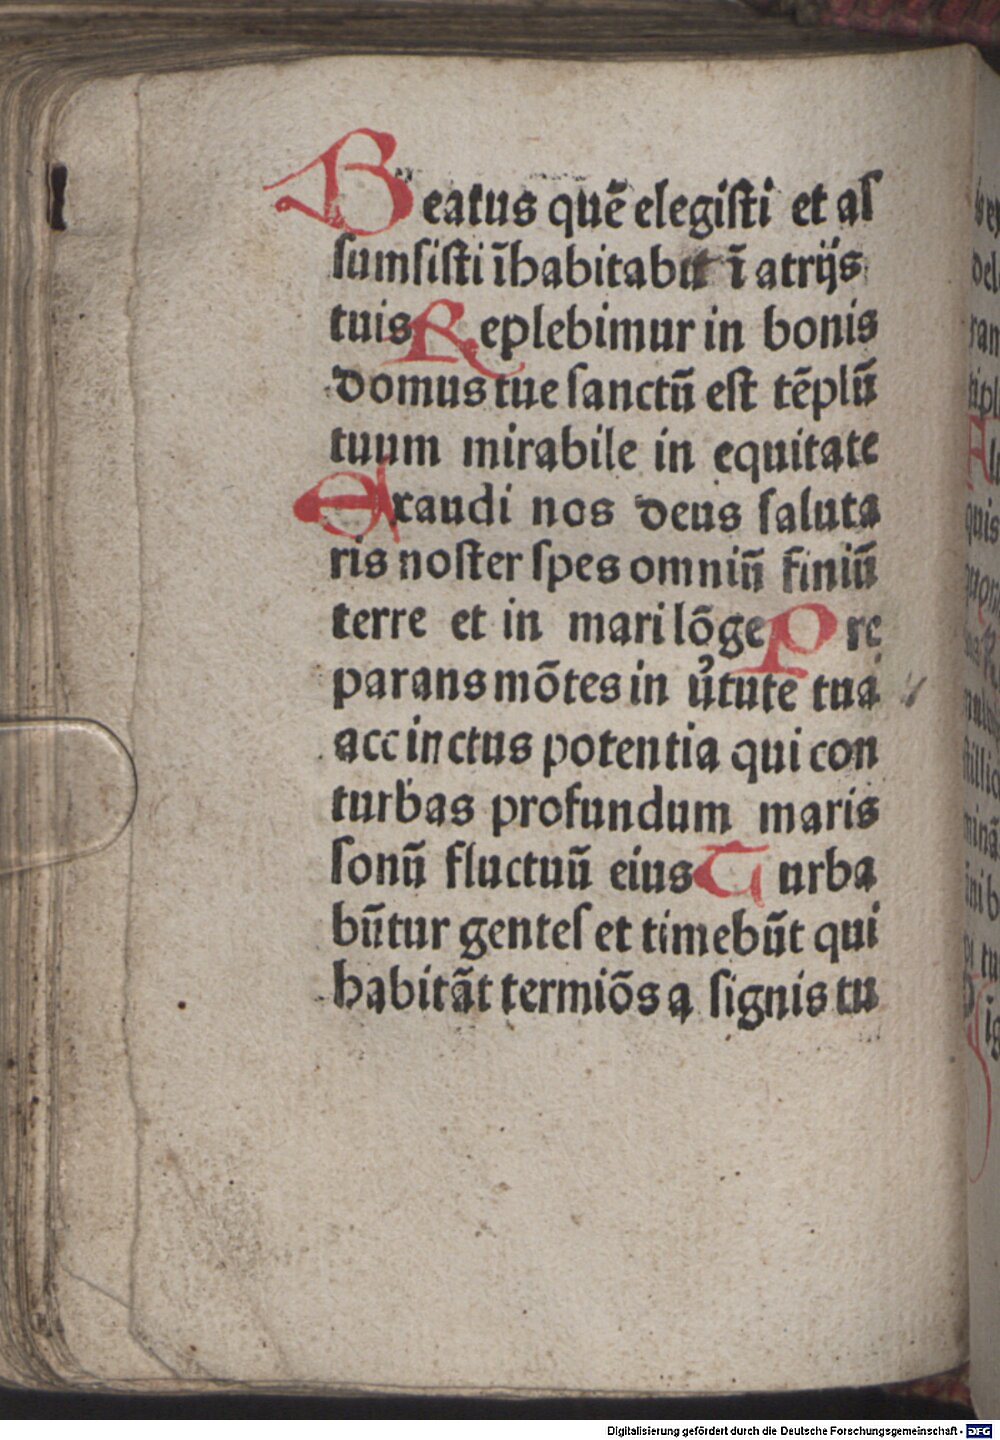 Beatus quē elegiſti et aſ
ſumſiſti īhabitabit ī atrijs
tuis Replebimur in bonis
domus tue ſanctū eſt tēplū
tuum mirabile in equitate
Exaudi nos deus ſaluta
ris noſter ſpes omniū finiū
terre et in mari lōge Pre
parans mōtes in v̓tute tua
accinctus potentia qui con
turbas profundum maris
ſonū fluctuū eius Turba
būtur genteſ et timebūt qui
habitāt termiōs a ſignis tu
Digitalisierung gefördert durch die Deutsche Forschungsgemeinschaft - DFG